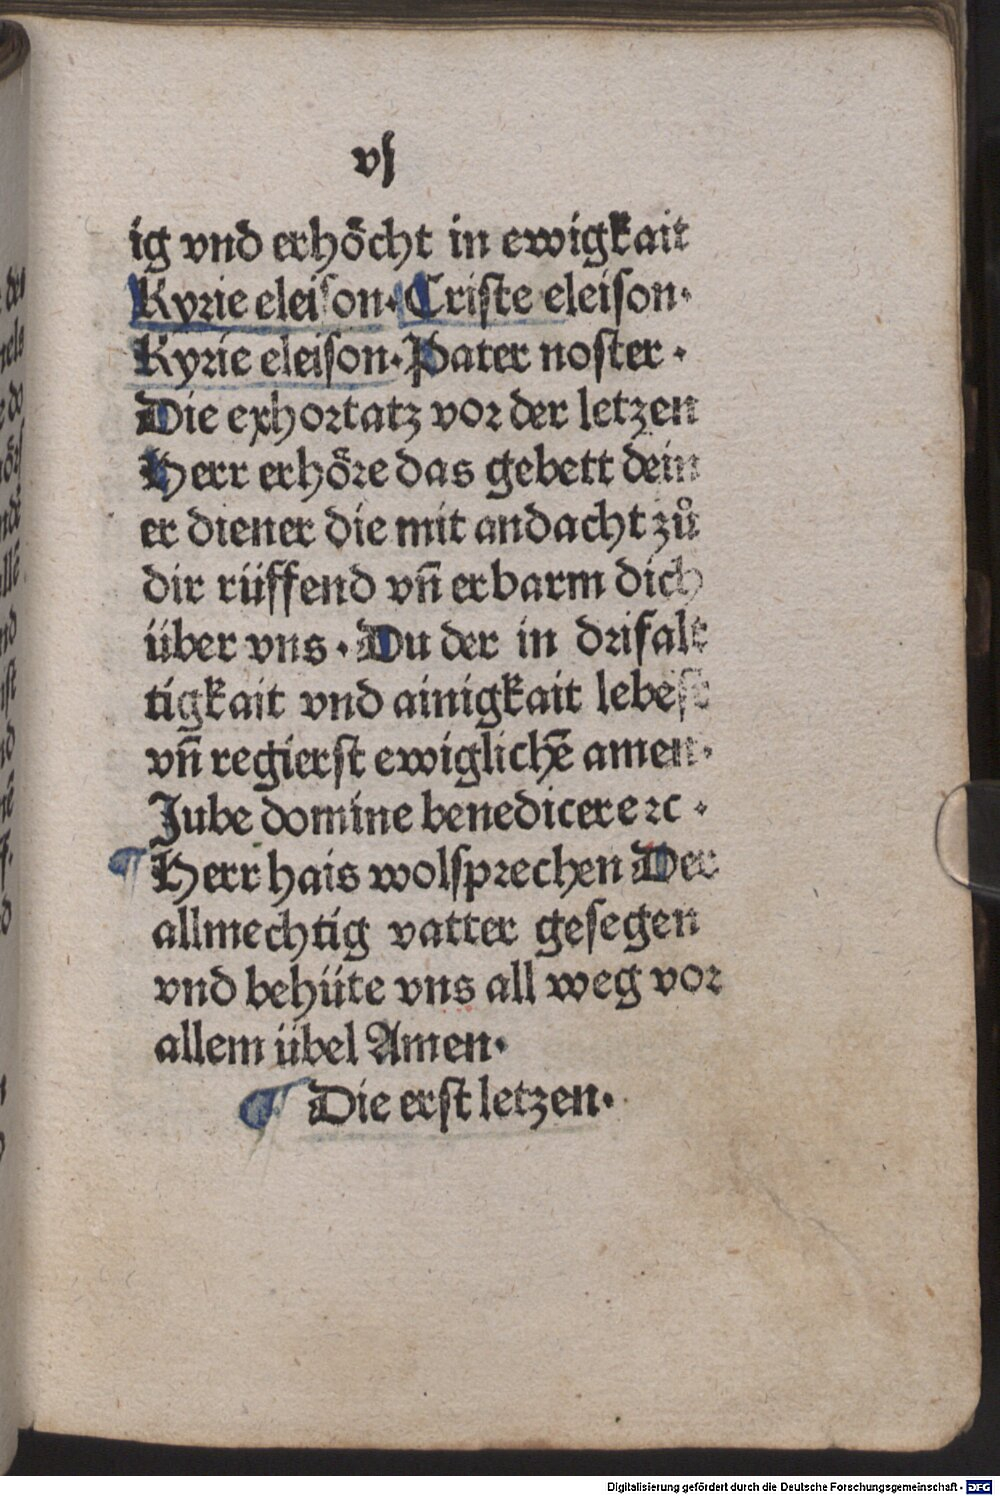 vj
ig vnd erhöcht in ewigkait
Kyrie eleison. Criste eleison.
Kyrie eleison. Pater noster.
Die exhortatz vor der letzen
Herr erhöre das gebett dein
er diener die mit andacht zů
dir rüffend vn̄ erbarm dich
über vns. Du der in drifalt
tigkait vnd ainigkait lebest
vn̄ regierst ewiglichē amen.
Jube domine benedicere ꝛc.
¶ Herr hais wolsprechen Der
allmechtig vatter gesegen
vnd behüte vns all weg vor
allem übel Amen.
¶ Die erst letzen.
Digitalisierung gefördert durch die Deutsche Forschungsgemeinschaft - DFG